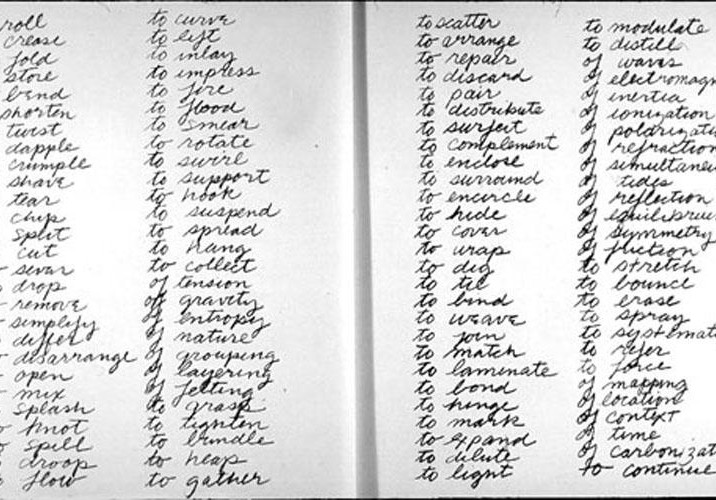 roll
crease
fold
store
bend
shorten
twist
dapple
crumple
shave
tear
chip
split
cut
sever
drop
remove
simplify
differ
disarrange
open
mix
splash
knot
spill
droop
flow
to curve
to lift
to inlay
to impress
to fire
to flood
to smear
to rotate
to swirl
to support
to hook
to suspend
to spread
to hang
to collect
of tension
of gravity
of entropy
of nature
of grouping
of layering
of felting
to grasp
to tighten
to bundle
to heap
to gather
to scatter
to arrange
to repair
to discard
to pair
to distribute
to surfeit
to complement
to enclose
to surround
to encircle
to hide
to cover
to wrap
to dig
to tie
to bind
to weave
to join
to match
to laminate
to bond
to hinge
to mark
to expand
to dilute
to light
to modulate
to distill
of waves
of electromagn
of inertia
of ionization
of polarizati
of refraction
of simultanei
of tides
of reflection
of equilibrium
of symmetry
of friction
to stretch
to bounce
to erase
to spray
to systemati
to refer
to force
of mapping
of location
of context
of time
of carbonizat
to continue